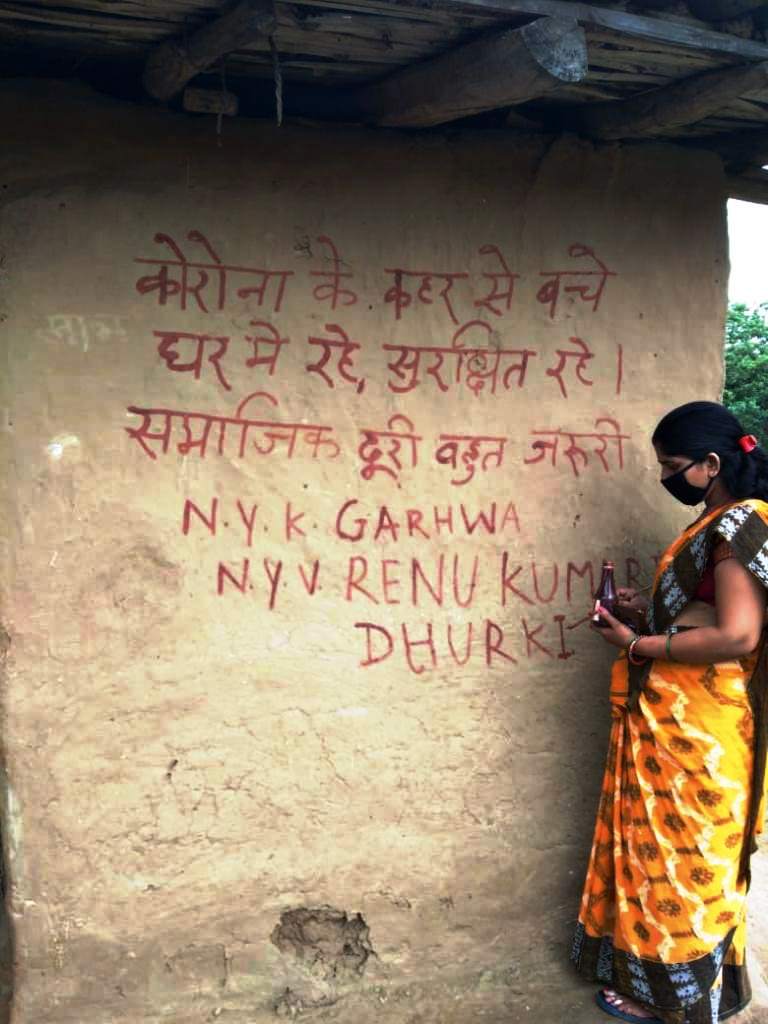 कोरोना के कहर से बच्चे
घर मे रहे, सुरक्षित रहे।
समाजिक दूरी बहुत जरूरी
N.Y.K. GARHWA
N.Y.V. RENU KUMARI
DHURKI